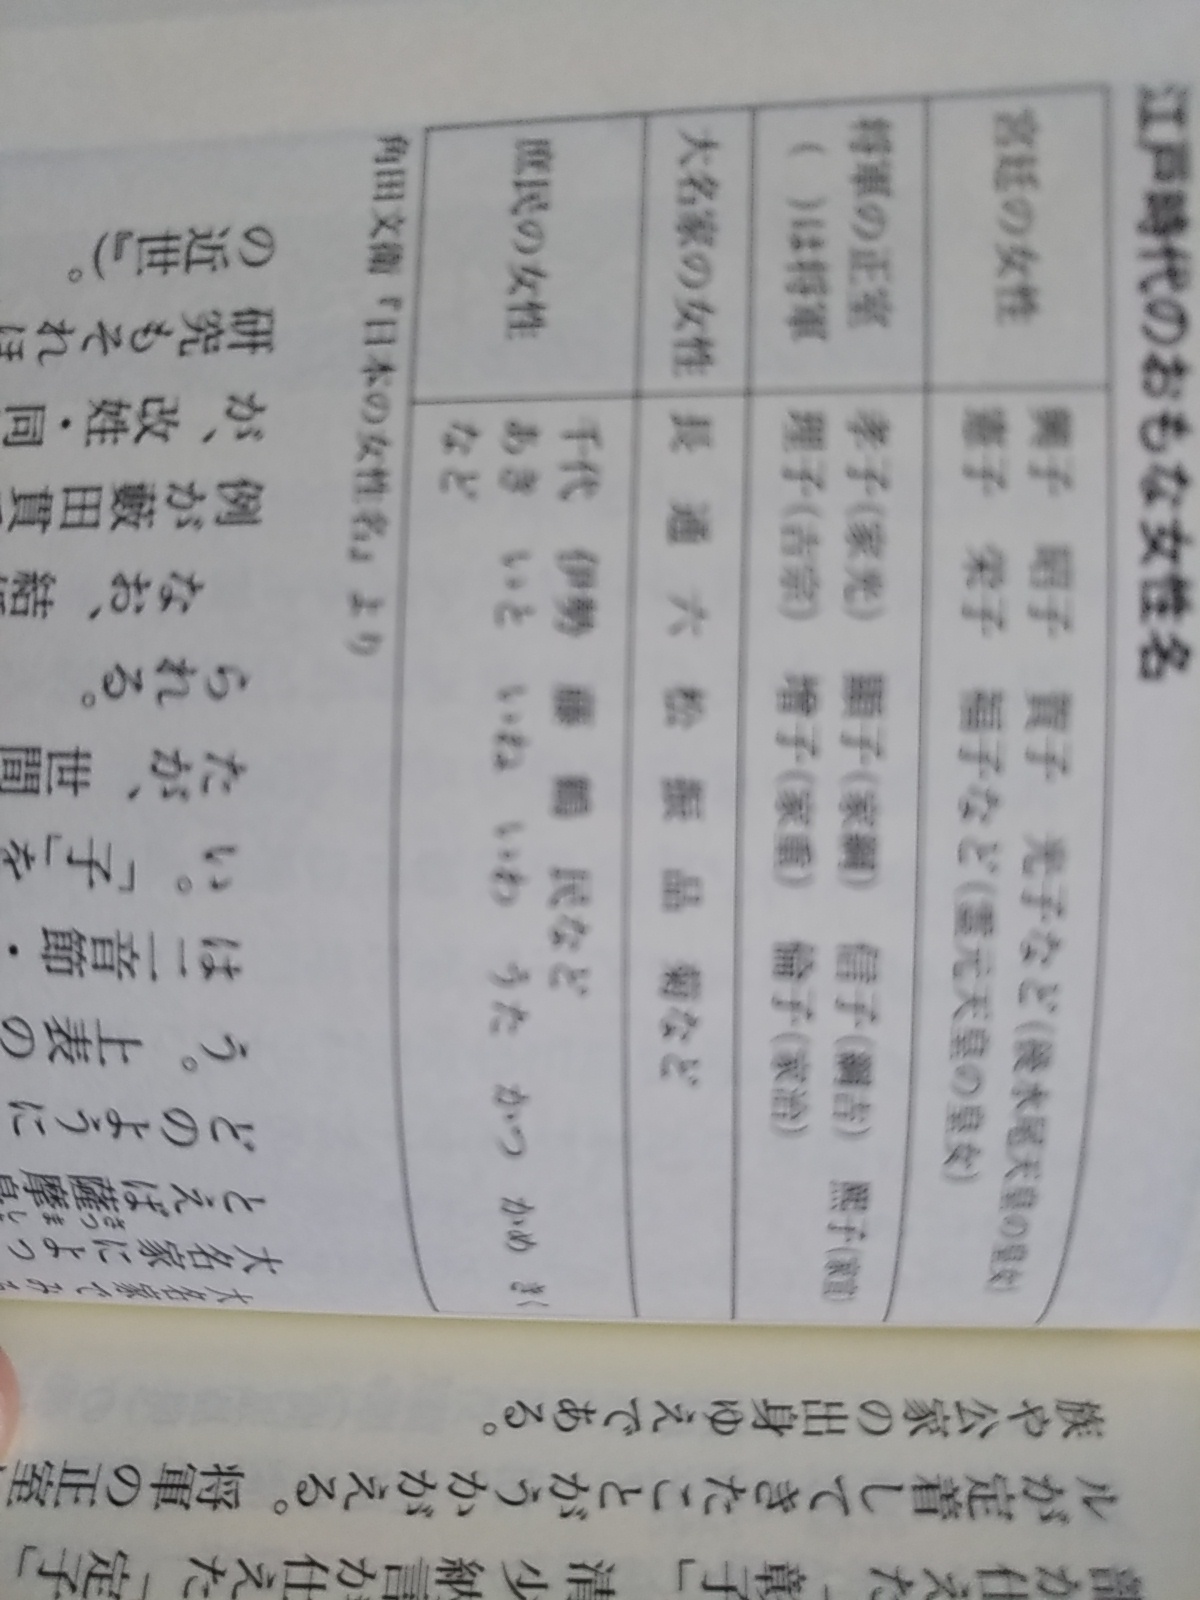 江戸時代のおもな女性名
宮廷の女性
興子 昭子 賀子 光子など(後水尾天皇の皇女)
憲子 栄子 福子など(霊元天皇の皇女)
将軍の正室
( )は将軍
孝子(家光) 顕子(家綱) 信子(綱吉) 熙子(家宣)
理子(吉宗) 増子(家重) 倫子(家治)
大名家の女性
長 通 六 松 振 品 菊など
庶民の女性
千代 伊勢 藤 鶴 民など
あき いと いね いわ うた かつ かめ きく
など
角田文衞『日本の女性名』より
大名家でみる
大名家によっ
とえば薩摩島
さつま
どのように
う。上表の
は二音節・
い。「子」を
たが、世間
られる。
なお、結
例が藪田貫
が、改姓・同
研究もそれほ
の近世』)。
部が仕えた「彰子」 清少納言が仕えた「定子」
ルが定着してきたことがうかがえる。将軍の正室
族や公家の出身ゆえである。